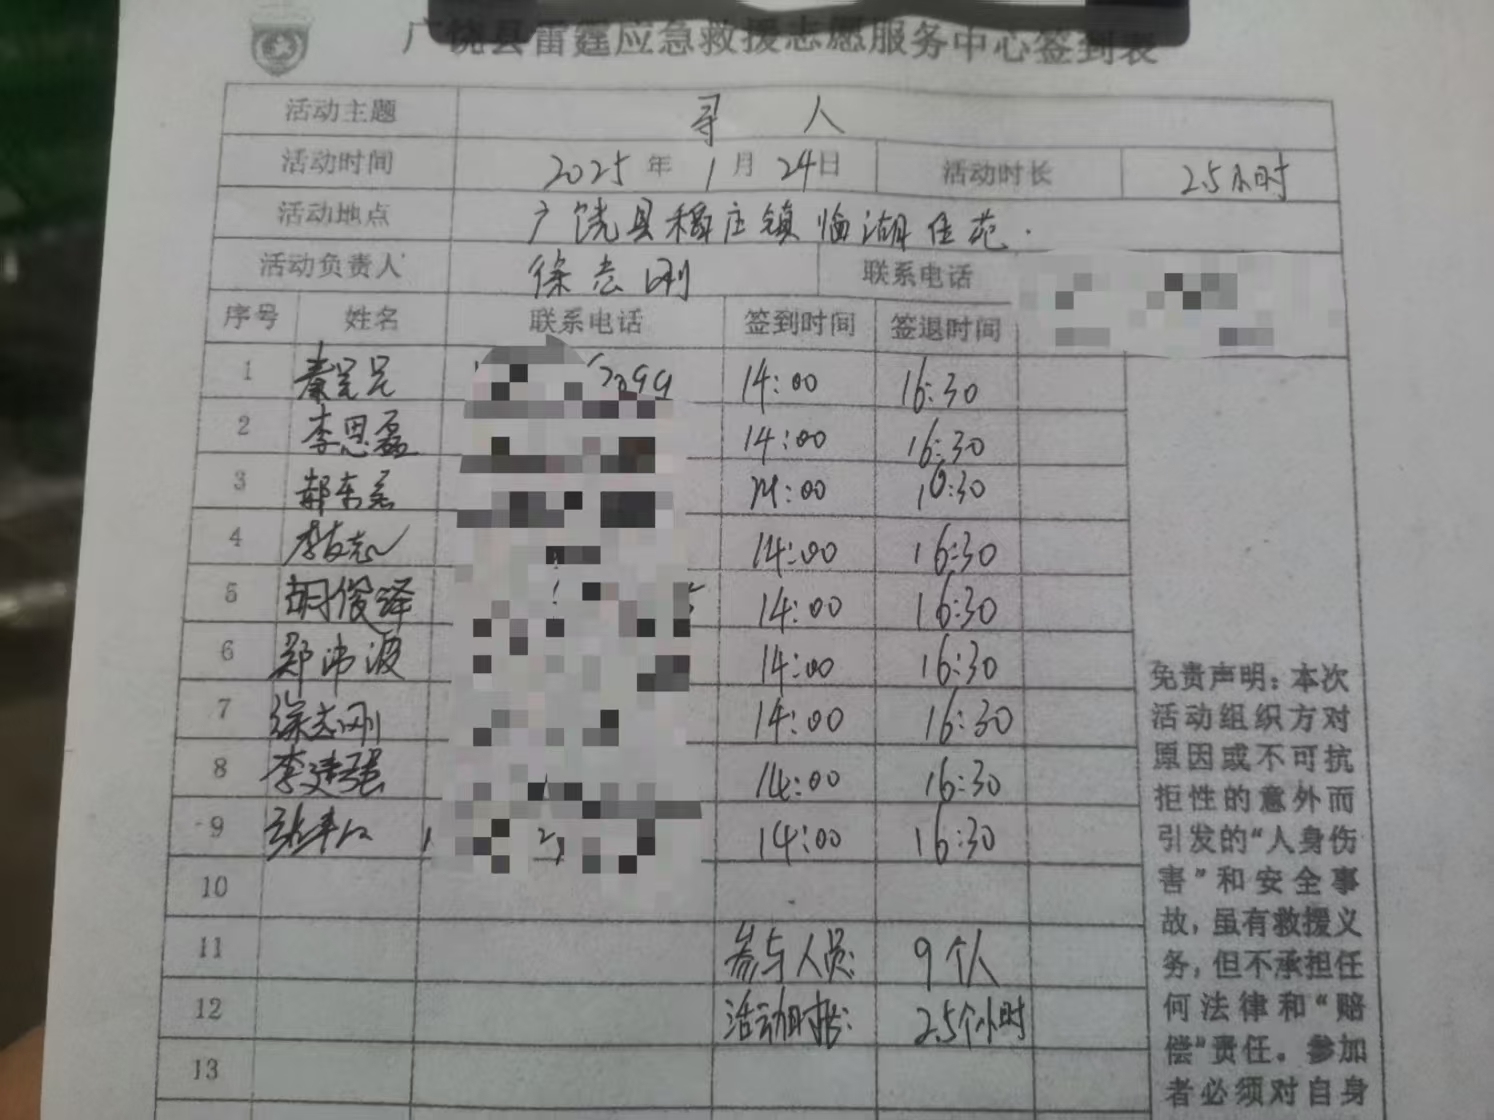 广饶县雷霆应急救援志愿服务中心签到表
活动主题 寻人
活动时间 2025年1月24日 活动时长 2.5小时
活动地点 广饶县稻庄镇临湖佳苑.
活动负责人 徐志刚 联系电话
序号 姓名 联系电话 签到时间 签退时间
1 14:00 16:30
2 李思磊 14:00 16:30
3 郝东磊 14:00 16:30
4 李友志 14:00 16:30
5 胡俊译 14:00 16:30
6 郑沛源 14:00 16:30
7 徐志刚 14:00 16:30
8 李建强 14:00 16:30
9 14:00 16:30
10
11 参与人员: 9个人
12 活动时长: 2.5个小时
13
免责声明:本次
活动组织方对
原因或不可抗
拒性的意外而
引发的“人身伤
害”和安全事
故,虽有救援义
务,但不承担任
何法律和“赔
偿”责任。参加
者必须对自身